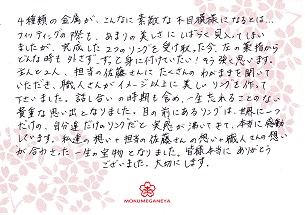 4種類の金属が、こんなに素敵な木目模様になるとは…
フィッティングの際も、あまりの美しさにしばらく見入ってしまい
ましたが、完成した2つのリングを受け取った今、左の薬指から
どんな時も外さず、ずっと身に付けていたい！そう強く思います。
主人と2人、担当の佐藤さんにたくさんのわがままを聞いて
いただき、職人さんがイメージ以上に美しいリングを作って
下さいました。話し合いの時期も含め、一生忘れることのない
貴重な思い出となりました。目の前にあるリングは、世界に一つ
だけの、自分達だけのリングだと実感が沸いてきて、本当に感動
しています。私達の想い＋担当の佐藤さんの想い＋職人さんの想い
が合わさった一生の宝物となりました。皆様本当にありがとう
ございました。大切にします。
MOKUMEGANEYA